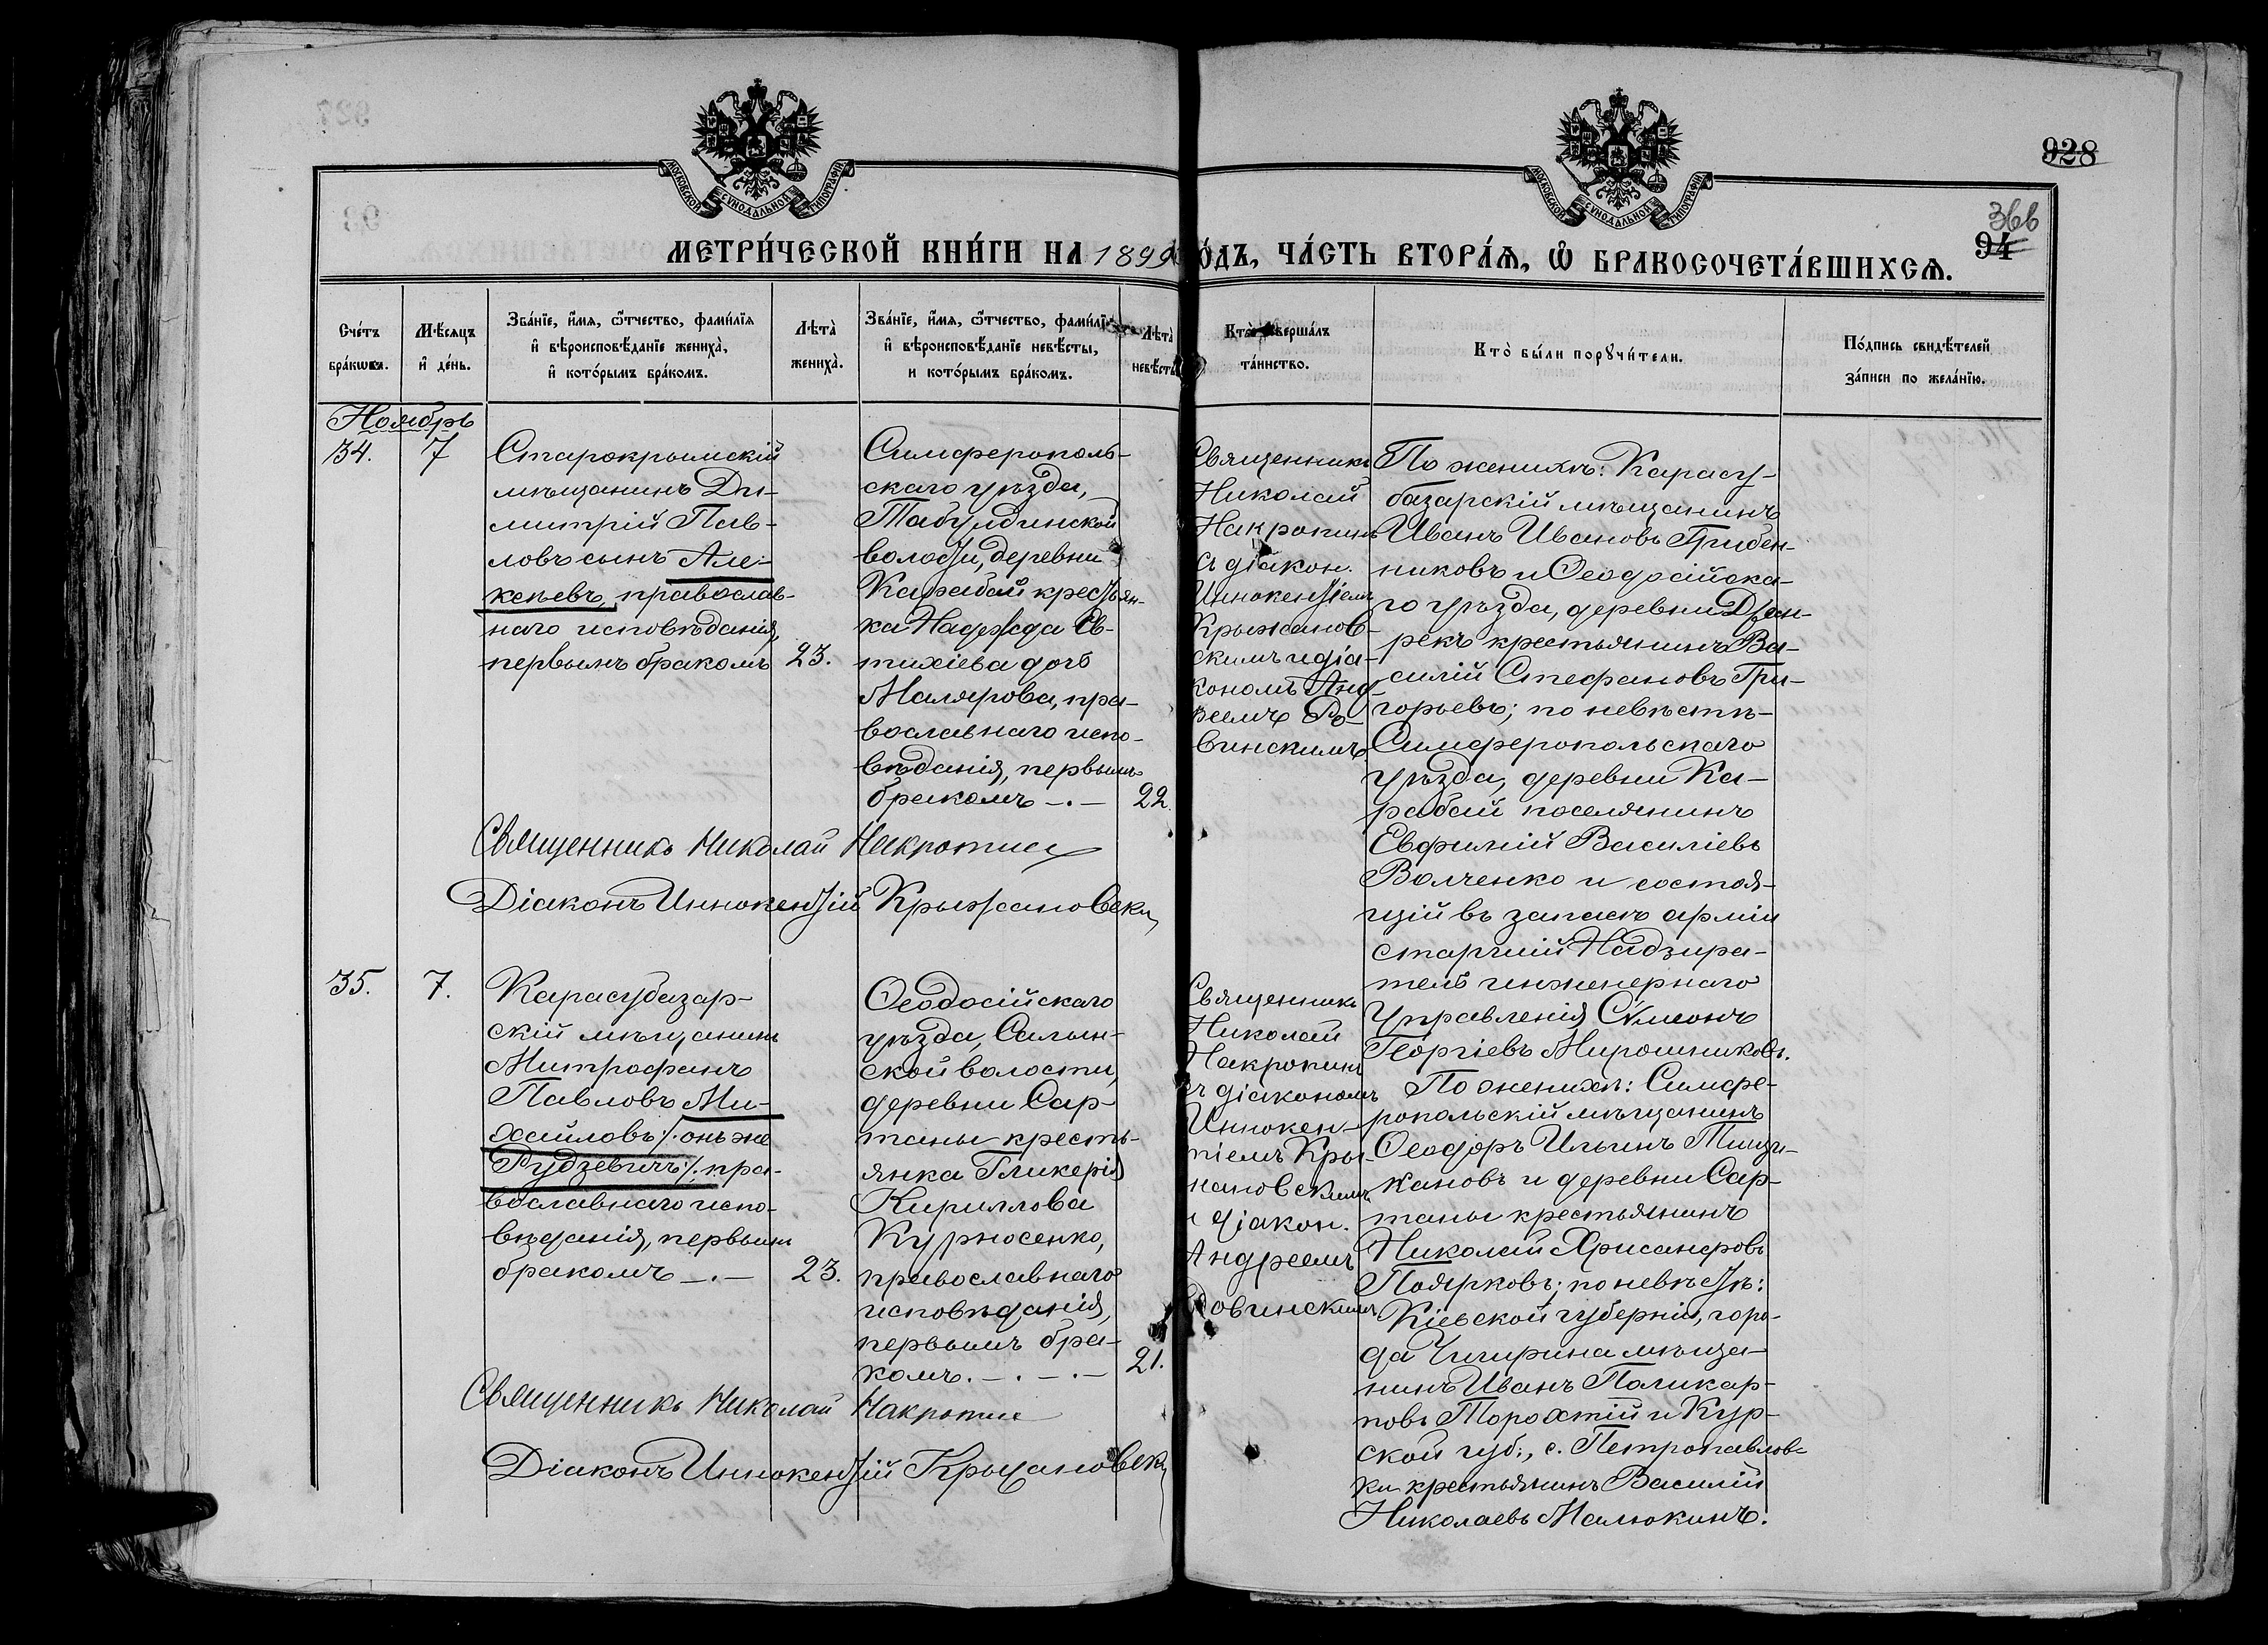 928
366
94
МОСКОВСКОЙ СѴНОДАЛЬНОЙ ТИПОГРАФІИ
МОСКОВСКОЙ СѴНОДАЛЬНОЙ ТИПОГРАФІИ
МЕТРИ́ЧЕСКОЙ КНИ́ГИ НА 1899 ГО́ДЪ, ЧА́СТЬ ВТОРА́Ѧ, Ѽ БРАКОСОЧЕТА́ВШИХСѦ.
Сче́тъ
бра́кωвъ.
Мѣ́сяцъ
и҆ де́нь.
Зва́нїе, и҆́мѧ, ѻ҆́тчество, фами́лїѧ
и҆ вѣроисповѣ́данїе жениха̀,
и҆ кото́рымъ бра́комъ.
Лѣта̀
жениха̀.
Зва́нїе, и҆́мѧ, ѻ҆́тчество, фами́лїѧ
и҆ вѣроисповѣ́данїе невѣ́сты,
и кото́рымъ бра́комъ.
Лѣта̀
невѣ́сты
Кто̀ соверша́лъ
та́инство.
Кто̀ бы́ли порꙋчи́тели.
По́дпись свидѣ́телей
за́писи по жела́нїю.
Ноябрь
34.
7
Старокрымскій
мѣщанинъ Ди-
митрій Пав-
ловъ сынъ Але-
ксѣевъ, православ-
наго исповѣданія,
первымъ бракомъ
23.
Симферополь-
скаго уѣзда,
Табулдинской
волости, деревни
Карабай крестьян-
ка Надежда Ев-
тихіева дочь
Малярова, пра-
вославнаго испо-
вѣданія, первымъ
бракомъ –.–
22.
Священникъ
Николай
Накропинъ
съ діакон.
Иннокентіемъ
Крыжанов-
скимъ и діа-
кономъ Анд-
реемъ Ро-
винскимъ
По женихѣ: Карасу-
базарскій мѣщанинъ
Иванъ Ивановъ Грибен-
никовъ и Ѳеодосійска-
го уѣзда, деревни Джан-
рекъ крестьянинъ Ва-
силій Стефановъ Гри-
горьевъ; по невѣстѣ-
Симферопольскаго
уѣзда, деревни Ка-
рабай поселянинъ
Евфимій Василіевъ
Волченко и состоя-
щій въ запасѣ арміи
старшій Надзира-
тель инженернаго
Управленія Сѵмеонъ
Георгіевъ Мирошниковъ.
Священникъ Николай Накропин
Діаконъ Иннокентій Крыжановски
35.
7.
Карасубазар-
скій мѣщанинъ
Митрофанъ
Павловъ Ми-
хайловъ /: онъ же
Рудзевичъ :/, пра-
вославнаго испо-
вѣданія, первымъ
бракомъ –.–
23.
Ѳеодосійскаго
уѣзда, Салын-
ской волости,
деревни Сар-
таны кресть-
янка Гликерія
Кириллова
Курносенко,
православнаго
исповѣданія,
первымъ бра-
комъ. –. –. –
21.
Священникъ
Николай
Накропинъ
съ діакономъ
Иннокен-
тіемъ Кры-
жановскимъ
и діакон.
Андреемъ
Ровинскимъ
По женихѣ: Симфе-
ропольскій мѣщанинъ
Ѳеодоръ Ильинъ
и деревни Сар-
таны крестьянинъ
Николай Хрисанфовъ
Поярковъ; по невѣстѣ:
Кіевской губерніи, горо-
да Чигирина мѣща-
нинъ Иванъ Поликар-
повъ Торохтій и Кур-
ской губ:, с. Петропавлов-
ки крестьянинъ Василій
Николаевъ Малюкинъ.
Священникъ Николай Накропин
Діаконъ Иннокентій Крыжановски